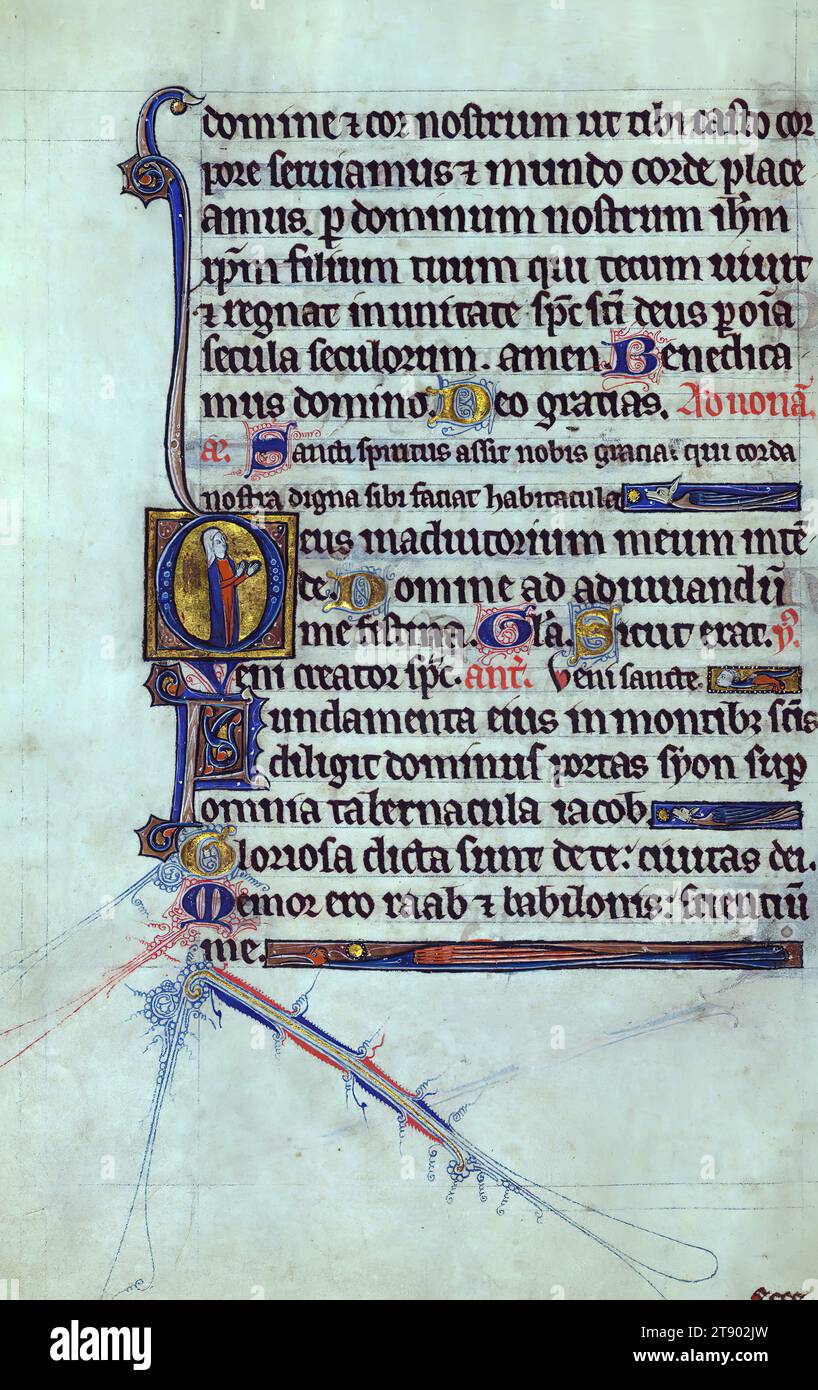 domine ⁊ cor nostrum ut tibi casto cor
pore seruiamus ⁊ mundo corde place
amus. p dominum nostrum ihm
xpm filium tuum qui tecum uiuit
⁊ regnat in unitate spc sci deus p oia
secula seculorum. amen. Benedica
mus domino. Deo gracias. Ad nonā.
añ. Sancti spiritus assit nobis gracia: qui corda
nostra digna sibi faciat habitacula
Deus in adiutorium meum inte
de. Domine ad adiuuandū
me festina. Gla. Sicut erat. ẏ
Veni creator spc. ant. Veni sancte
Fundamenta eius in montibꝫ scis
diligit dominus portas syon sup
omnia tabernacula iacob
Gloriosa dicta sunt de te: ciuitas dei.
Memor ero raab ⁊ babilonis: scientiū
me.
alamy
Image ID: 2T902JW
www.alamy.com